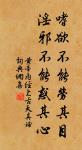 嗜欲不能勞其目
淫邪不能惑其心
黃帝內經上古天真論
詞典網集